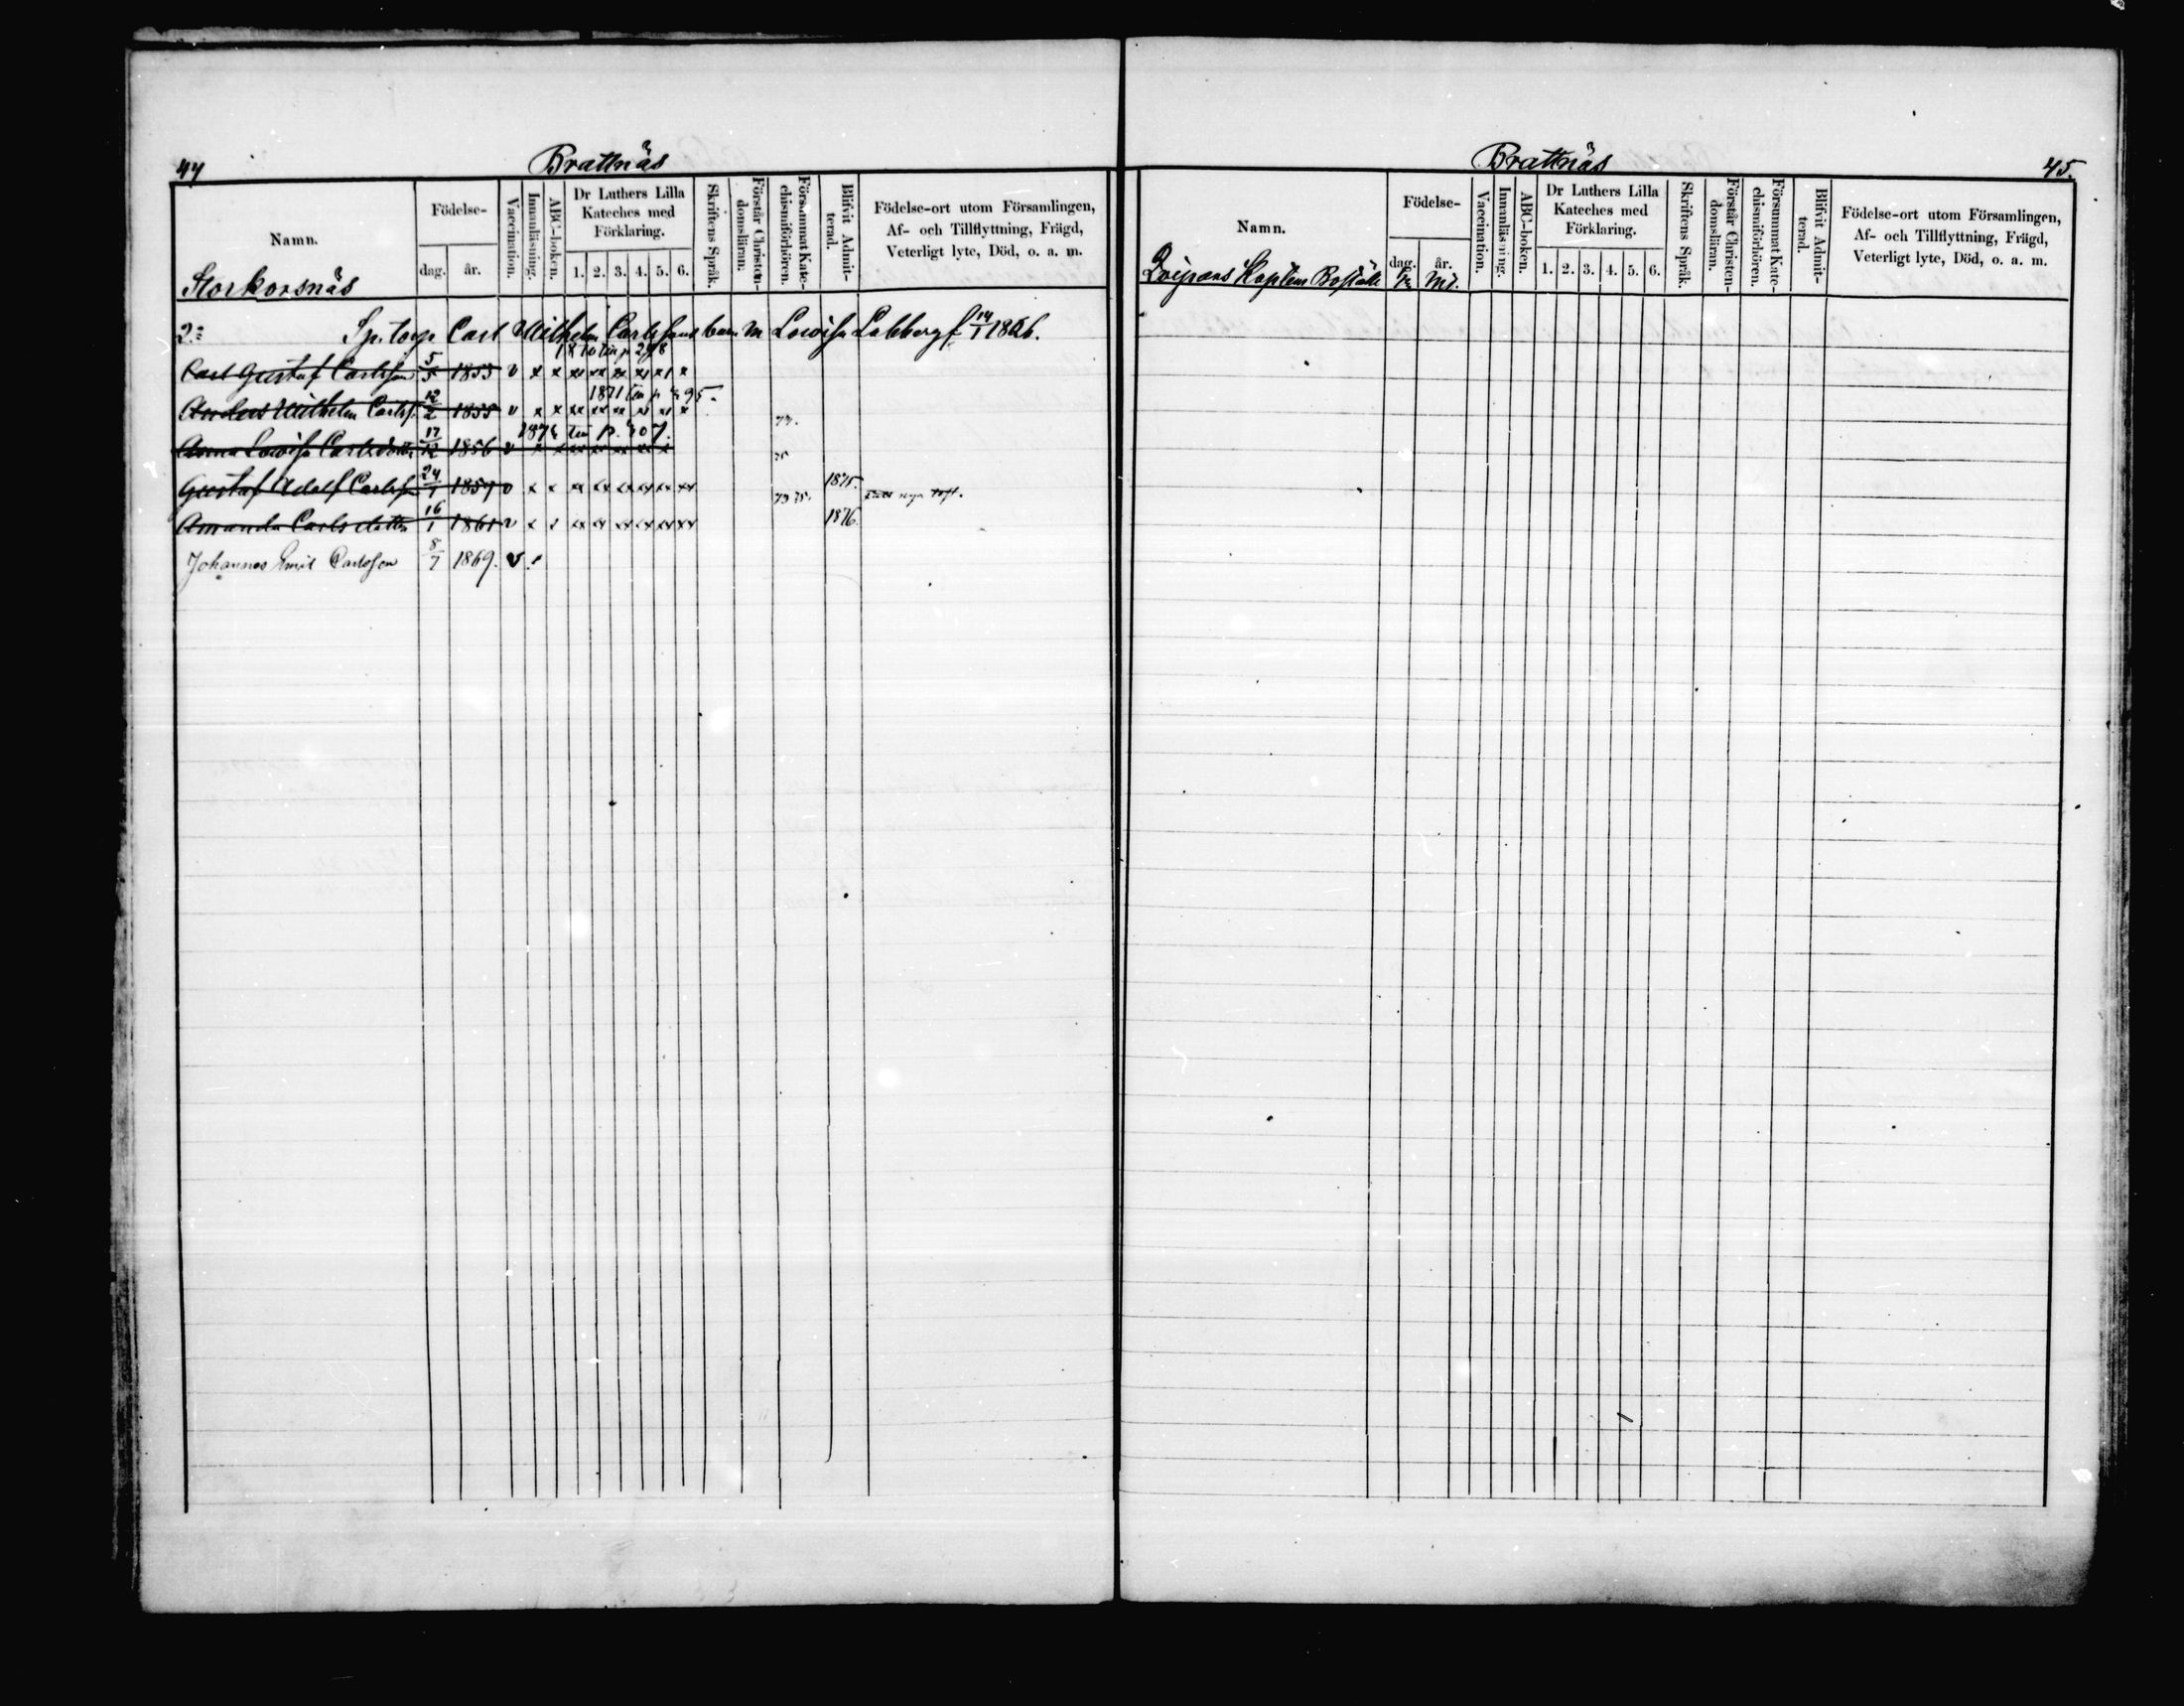 44 Brattnäs
Namn. Födelse- dag. år. Vaccination. Innanläsning. ABC-boken. Dr Luthers Lilla Kateches med Förklaring. 1. 2. 3. 4. 5. 6. Skriftens Språk. Förstår Christendomsläran. Försummat Katechismiförhören. Blifvit Admitterad. Födelse-ort utom Församlingen, Af- och Tillflyttning, Frägd, Veterligt lyte, Död, o. a. m.
Storkorsnäs
2= Sp. torp. Carl Wilhelm Carlssons barn m Lovisa f 14/1 1826.
Carl Gustaf Carlsson 5/5 1853 v x x xx xx xx xx x
1871 p 95.
Anders Wilhelm Carlss. 12/2 1855 v x x xx xx xx x x x
73.
p. 407.
Anna Lovisa Carlsdotter 17/12 1856 v x x xx xx xx xx x
75
Gustaf Adolf Carlss 24/1 1859 v x x xx xx xx xx xx xx 73 75. 1875. nya
Amanda Carlsdotter 16/1 1861 v x x xx xx xx xx xx xx 1876.
Johannes Emil Carlsson 8/7 1869. v
Brattnäs 45.
Namn. Födelse- dag. år. Vaccination. Innanläsning. ABC-boken. Dr Luthers Lilla Kateches med Förklaring. 1. 2. 3. 4. 5. 6. Skriftens Språk. Förstår Christendomsläran. Försummat Katechismiförhören. Blifvit Admitterad. Födelse-ort utom Församlingen, Af- och Tillflyttning, Frägd, Veterligt lyte, Död, o. a. m.
Kaptens Boställe 1/2 Mt.